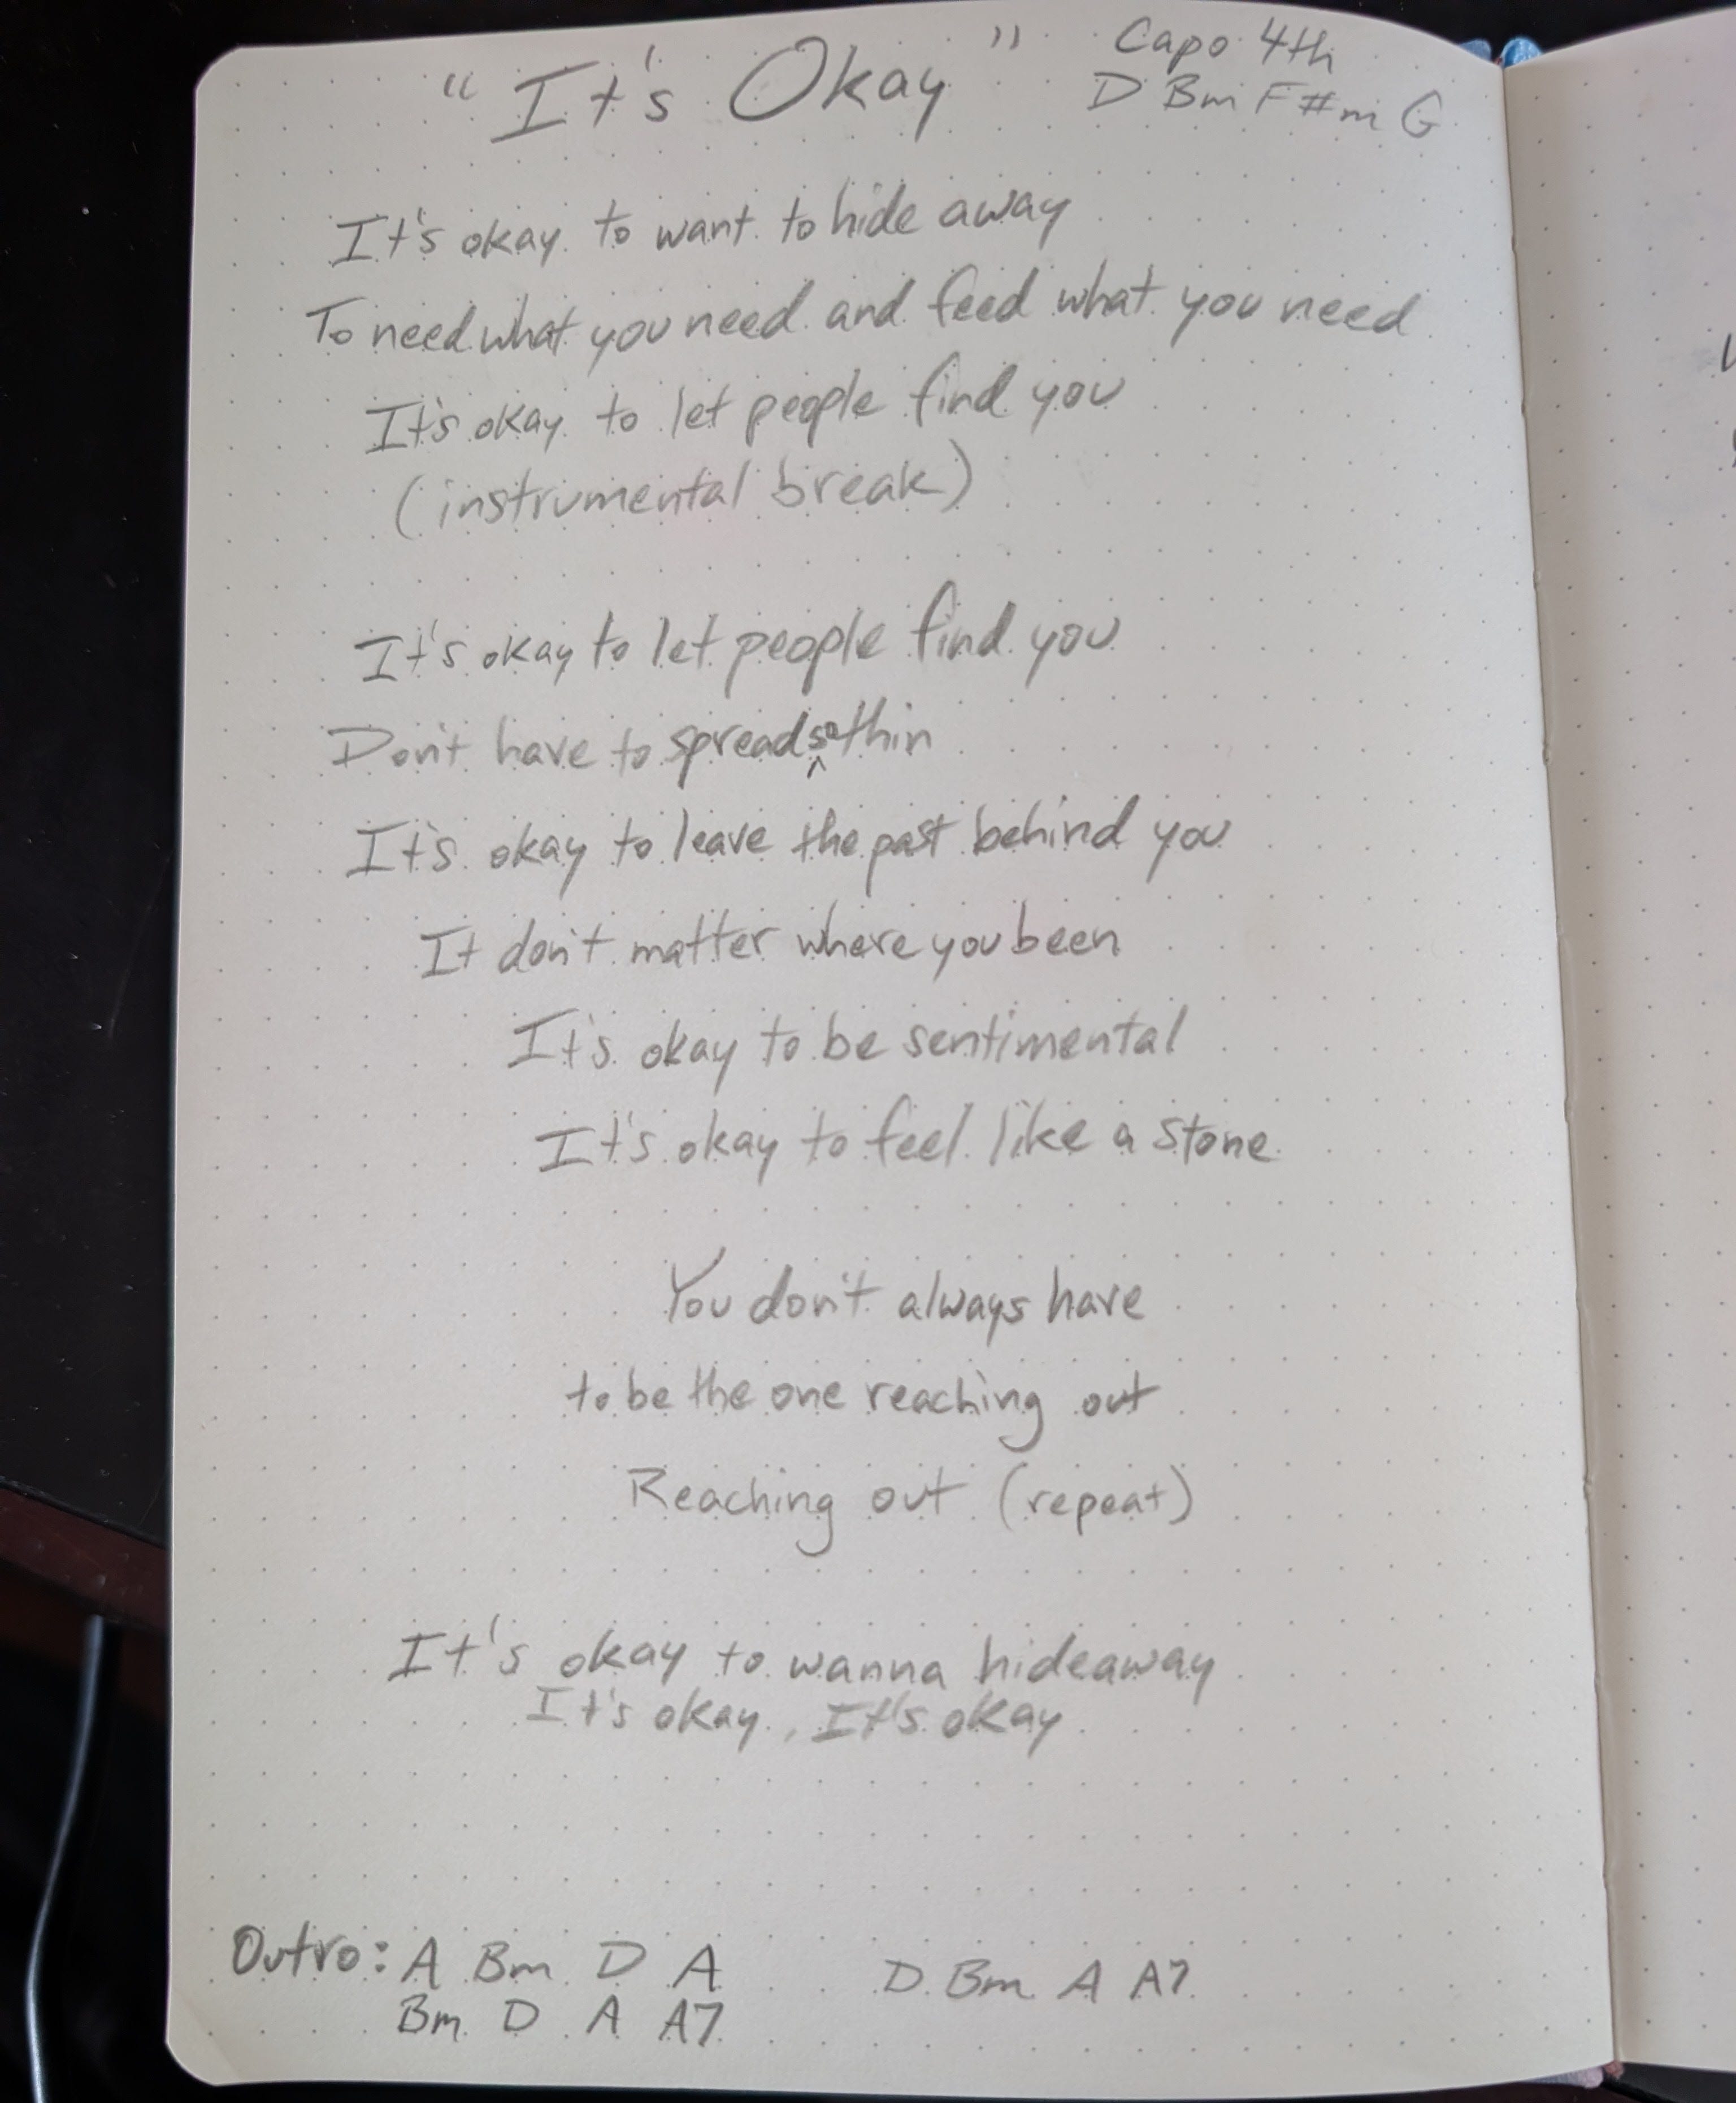 "It's Okay"
Capo 4th
D Bm F#m G
It's okay to want to hide away
To need what you need and feed what you need
It's okay to let people find you
(instrumental break)
It's okay to let people find you
Don't have to spread so thin
It's okay to leave the past behind you
It don't matter where you been
It's okay to be sentimental
It's okay to feel like a stone
You don't always have
to be the one reaching out
Reaching out (repeat)
It's okay to wanna hideaway
It's okay, It's okay
Outro: A Bm D A
Bm D A A7
D Bm A A7